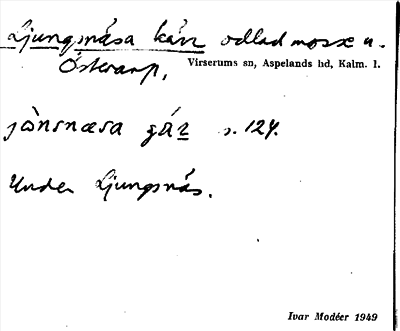 Ljungsnåsa kärr odlad mosse u.
Österarp.
Virserums sn, Aspelands hd, Kalm. l.
jònsnæsa gár s. 124.
Under Ljungsnäs.
Ivar Modéer 1949